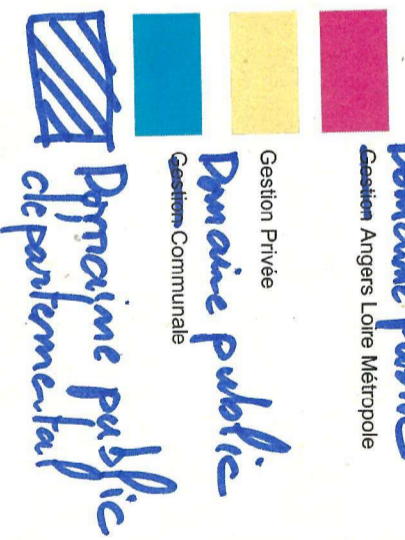 Domaine public
Gestion Angers Loire Métropole
Gestion Privée
Domaine public
Gestion Communale
Domaine public
départemental